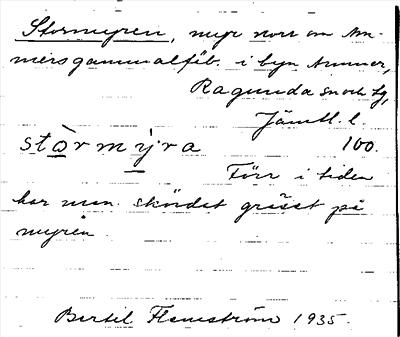 Stormyren, myr norr om Am-
mers gammalfäb. i byn Ammer,
Ragunda sn och tg,
Jämtl. l.
stòrmỳra 100.
Förr i tiden
har man skördat gräset på
myren.
Bertil Flemström 1935.